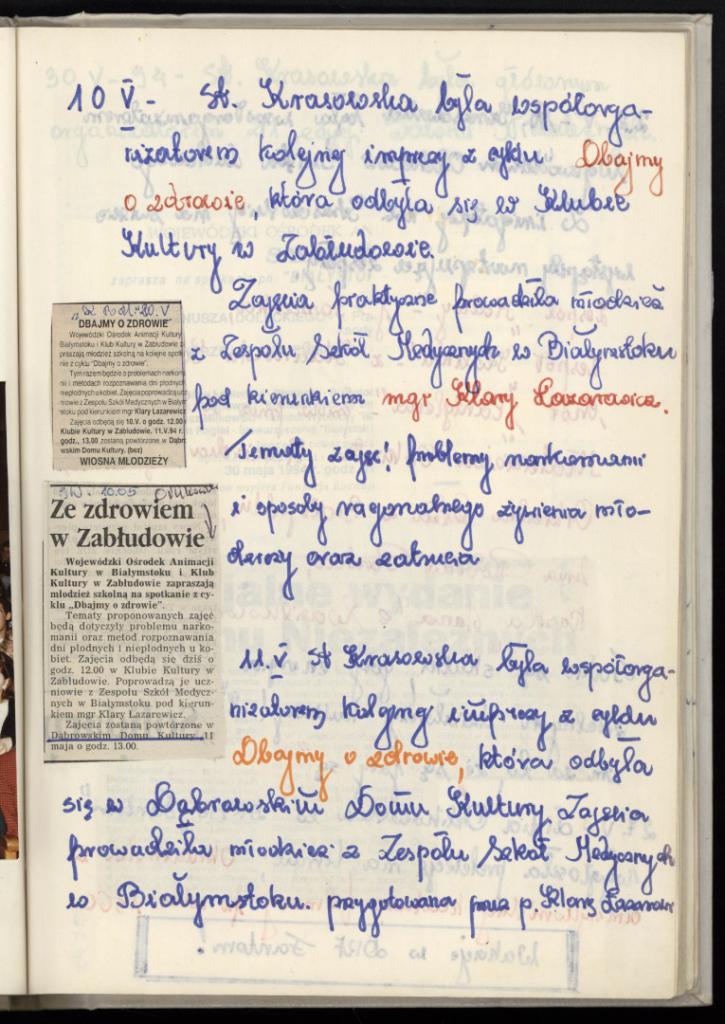 10 V - St. Krasowska była współorga-
nizatorem kolejnej imprezy z cyklu Dbajmy
o zdrowie, która odbyła się w Klubie
Kultury w Zabłudowie.
Zajęcia praktyczne prowadziła młodzież
z Zespołu Szkół Medycznych w Białymstoku
pod kierunkiem mgr Klary Łazarewicz.
Tematy zajęć: problemy narkomanii
i sposoby racjonalnego żywienia mło-
dzieży oraz
11.V St Krasowska była współorga-
nizatorem kolejnej imprezy z cyklu
Dbajmy o zdrowie, która odbyła
się w Dąbrowskim Domu Kultury Zajęcia
prowadziła młodzież z Zespołu Szkół Medycznych
w Białymstoku. przygotowana przez p. Klarę Łazarewicz
10. V
DBAJMY O ZDROWIE
Wojewódzki Ośrodek Animacji Kultury
Białymstoku i Klub Kultury w Zabłudowie z
praszają młodzież szkolną na kolejne spotk
nie z cyklu "Dbajmy o zdrowie".
Tym razem będzie o problemach narkom
nii i metodach rozpoznawania dni płodnych
niepłodnych u kobiet. Zajęcia poprowadzą uc
niowie z Zespołu Szkół Medycznych w Białym
stoku pod kierunkiem mgr Klary Lazarewicz
Zajęcia odbędą się 10.V. o godz. 12.00
Klubie Kultury w Zabłudowie. 11.V.94 r.
godz., 13.00 zostaną powtórzone w Dąbro
wskim Domu Kultury. (bez)
WIOSNA MŁODZIEŻY
10.05
Ze zdrowiem
w Zabłudowie
Wojewódzki Ośrodek Animacji
Kultury w Białymstoku i Klub
Kultury w Zabłudowie zapraszają
młodzież szkolną na spotkanie z cy-
klu „Dbajmy o zdrowie”.
Tematy proponowanych zajęć
będą dotyczyły problemu narko-
manii oraz metod rozpoznawania
dni płodnych i niepłodnych u ko-
biet. Zajęcia odbędą się dziś o
godz. 12.00 w Klubie Kultury w
Zabłudowie. Poprowadzą je ucz-
niowie z Zespołu Szkół Medycz-
nych w Białymstoku pod kierun-
kiem mgr Klary Lazarewicz.
Zajęcia zostaną powtórzone w
Dąbrowskim Domu Kultury 11
maja o godz. 13.00.